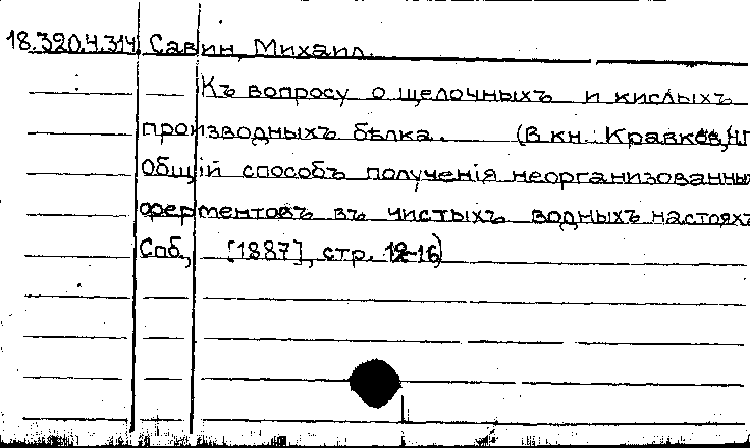 18.320.4.314 Савин, Михаил.
Къ вопросу о щелочныхъ и кислыхъ
производныхъ бѣлка. (В кн.: Кравков, Н.П.
Общій способъ полученія неорганизованны
ферментовъ въ чистыхъ водныхъ настояхъ
Спб., [1887], стр. 12-16)